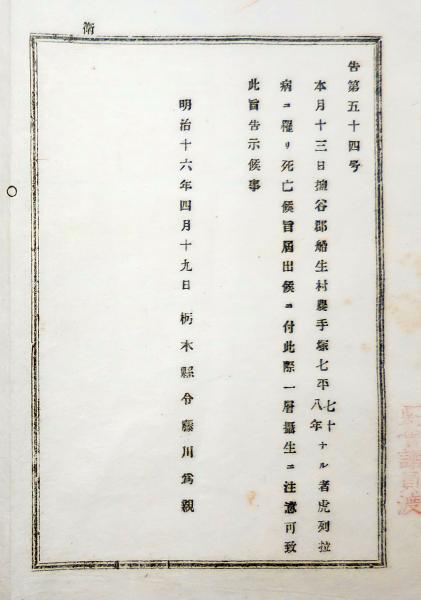 衛
告第五十四号
本月十三日塩谷郡船生村農手塚七平七十八年ナル者虎列拉
病ニ罹リ死亡候旨届出候ニ付此際一層攝生ニ注意可致
此旨告示候事
明治十六年四月十九日 栃木縣令藤川爲親
縣會議員渡